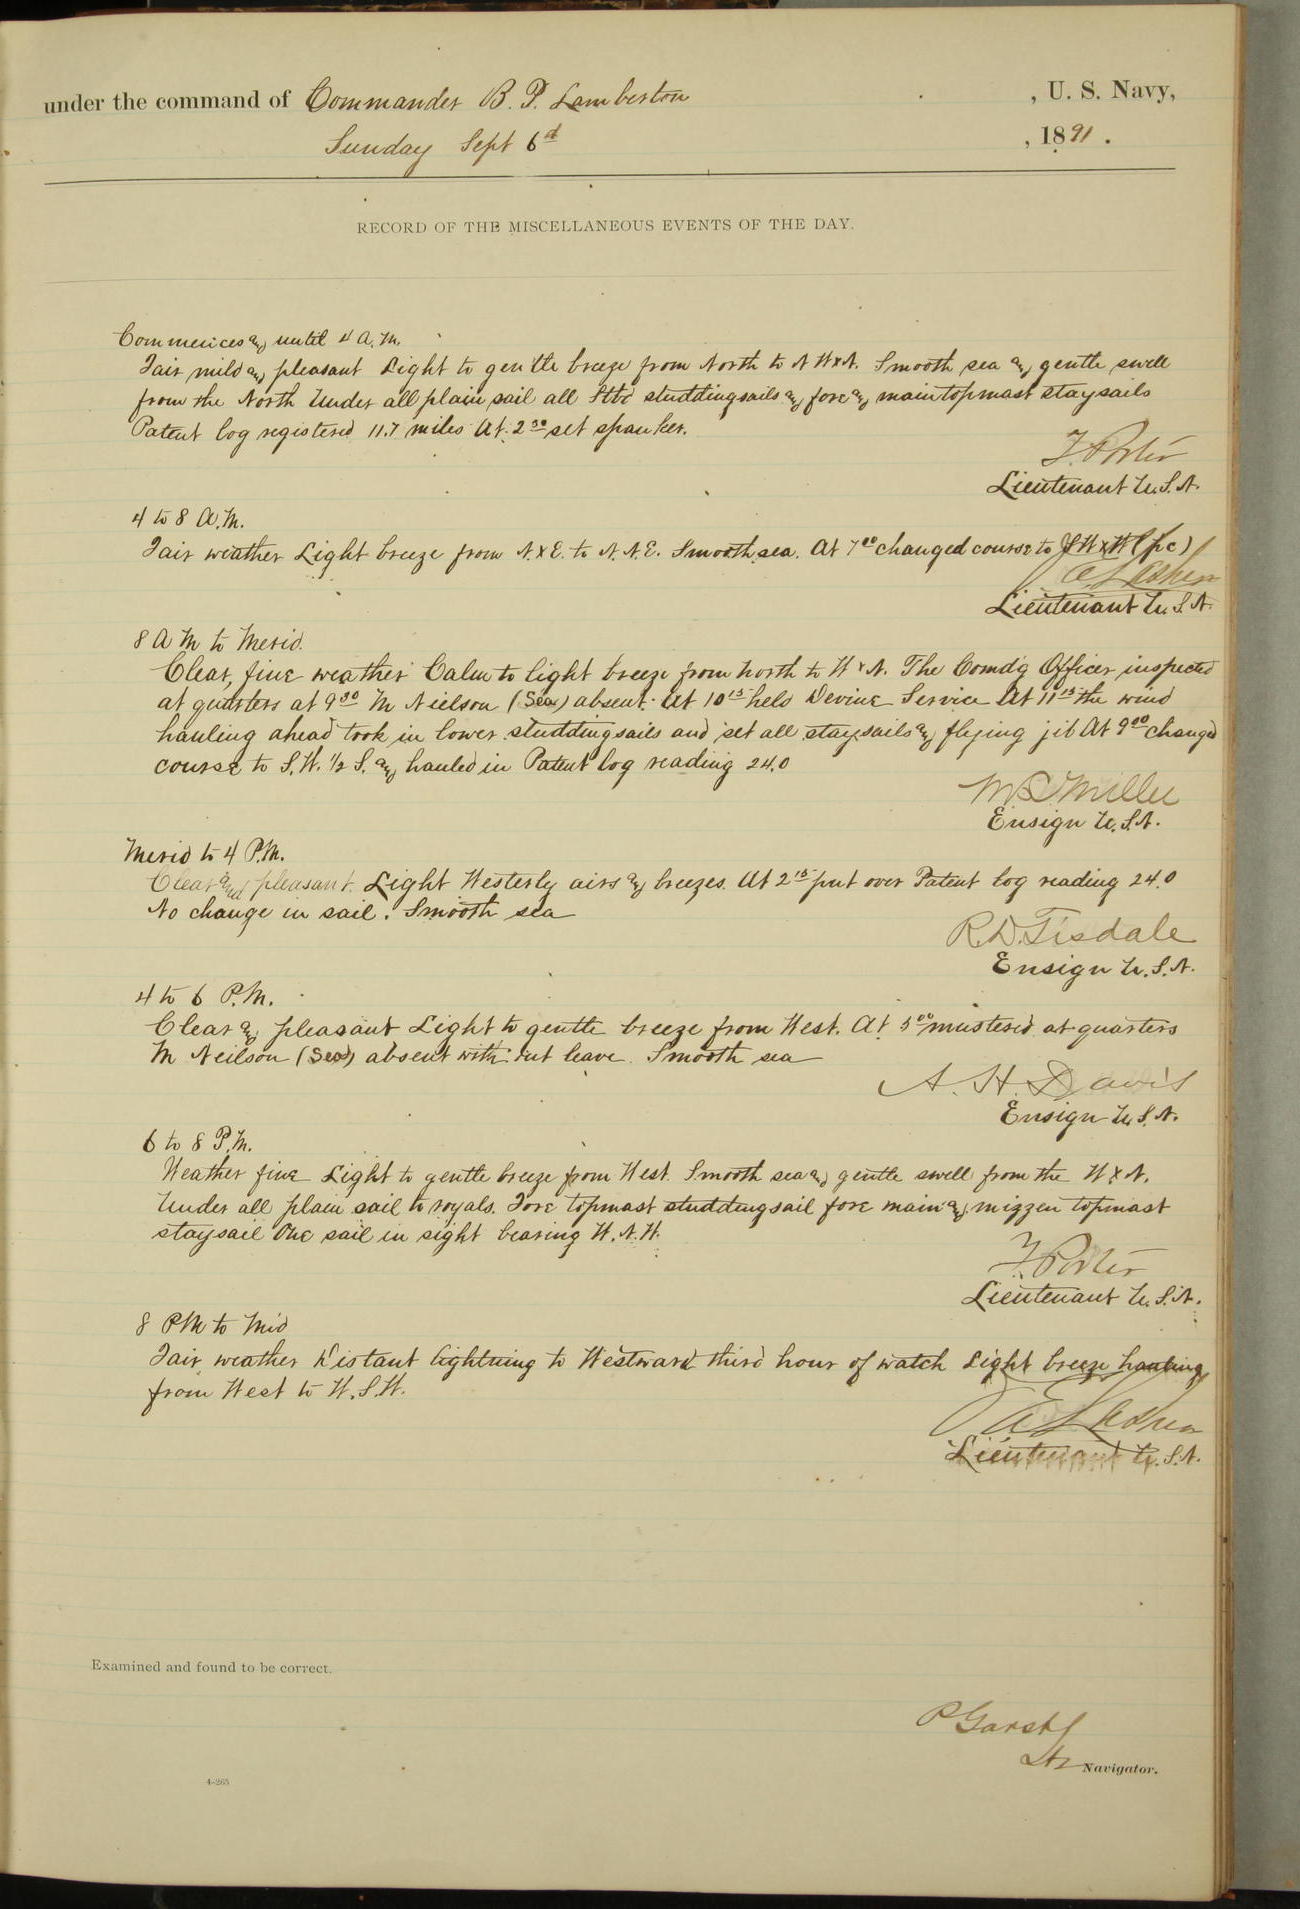 under the command of Commander B. P. Lamberton , U. S. Navy,
Sunday Sept 6d , 1891 .
RECORD OF THE MISCELLANEOUS EVENTS OF THE DAY.
Commences and until 4 A.M.
Fair mild and pleasant Light to gentle breeze from North to N W x N. Smooth sea and gentle swell
from the North Under all plain sail all Stbd studdingsails and fore and maintopmast staysails
Patent log registered 11.7 miles At 2 30 set spanker.
F. Porter
Lieutenant U.S.N.
4 to 8 A.M.
Fair weather Light breeze from N. x E. to N. N. E. Smooth sea. At 7 00 changed course to SW x W (pc)
Lieutenant U.S.N.
8 A M to Merid.
Clear, fine weather Calm to light breeze from north to W x N. The Comd'g Officer inspected
at quarters at 9 30 M Nielson (Sea) absent. At 10 15 held Devine Service At 11 15 the wind
hauling ahead took in lower studdingsails and set all staysails and flying jib At 9 00 changed
course to S. W. 1/2 S. and hauled in Patent log reading 24.0
Miller
Ensign U.S.N.
Merid to 4 P.M.
Clear and pleasant. Light Westerly airs and breezes. At 2 15 put over Patent log reading 24.0
No change in sail. Smooth sea
R.D. Tisdale
Ensign U.S.N.
4 to 6 P.M.
Clear and pleasant Light to gentle breeze from West. At 5 00 mustered at quarters
M Neilson (Sea) absent with out leave. Smooth sea
A. H. Davis
Ensign U.S.N.
6 to 8 P.M.
Weather fine Light to gentle breeze from West Smooth sea and gentle swell from the W x N.
Under all plain sail to royals. Fore topmast studdingsail fore main and mizzen topmast
staysail One sail in sight bearing W. N. W.
F. Porter
Lieutenant U.S.N.
8 PM to Mid
Fair weather Distant lightning to Westward third hour of watch Light breeze hauling
from West to W. S. W.
Lieutenant U.S.N.
Examined and found to be correct.
P Garst
Lt Navigator.
4-265